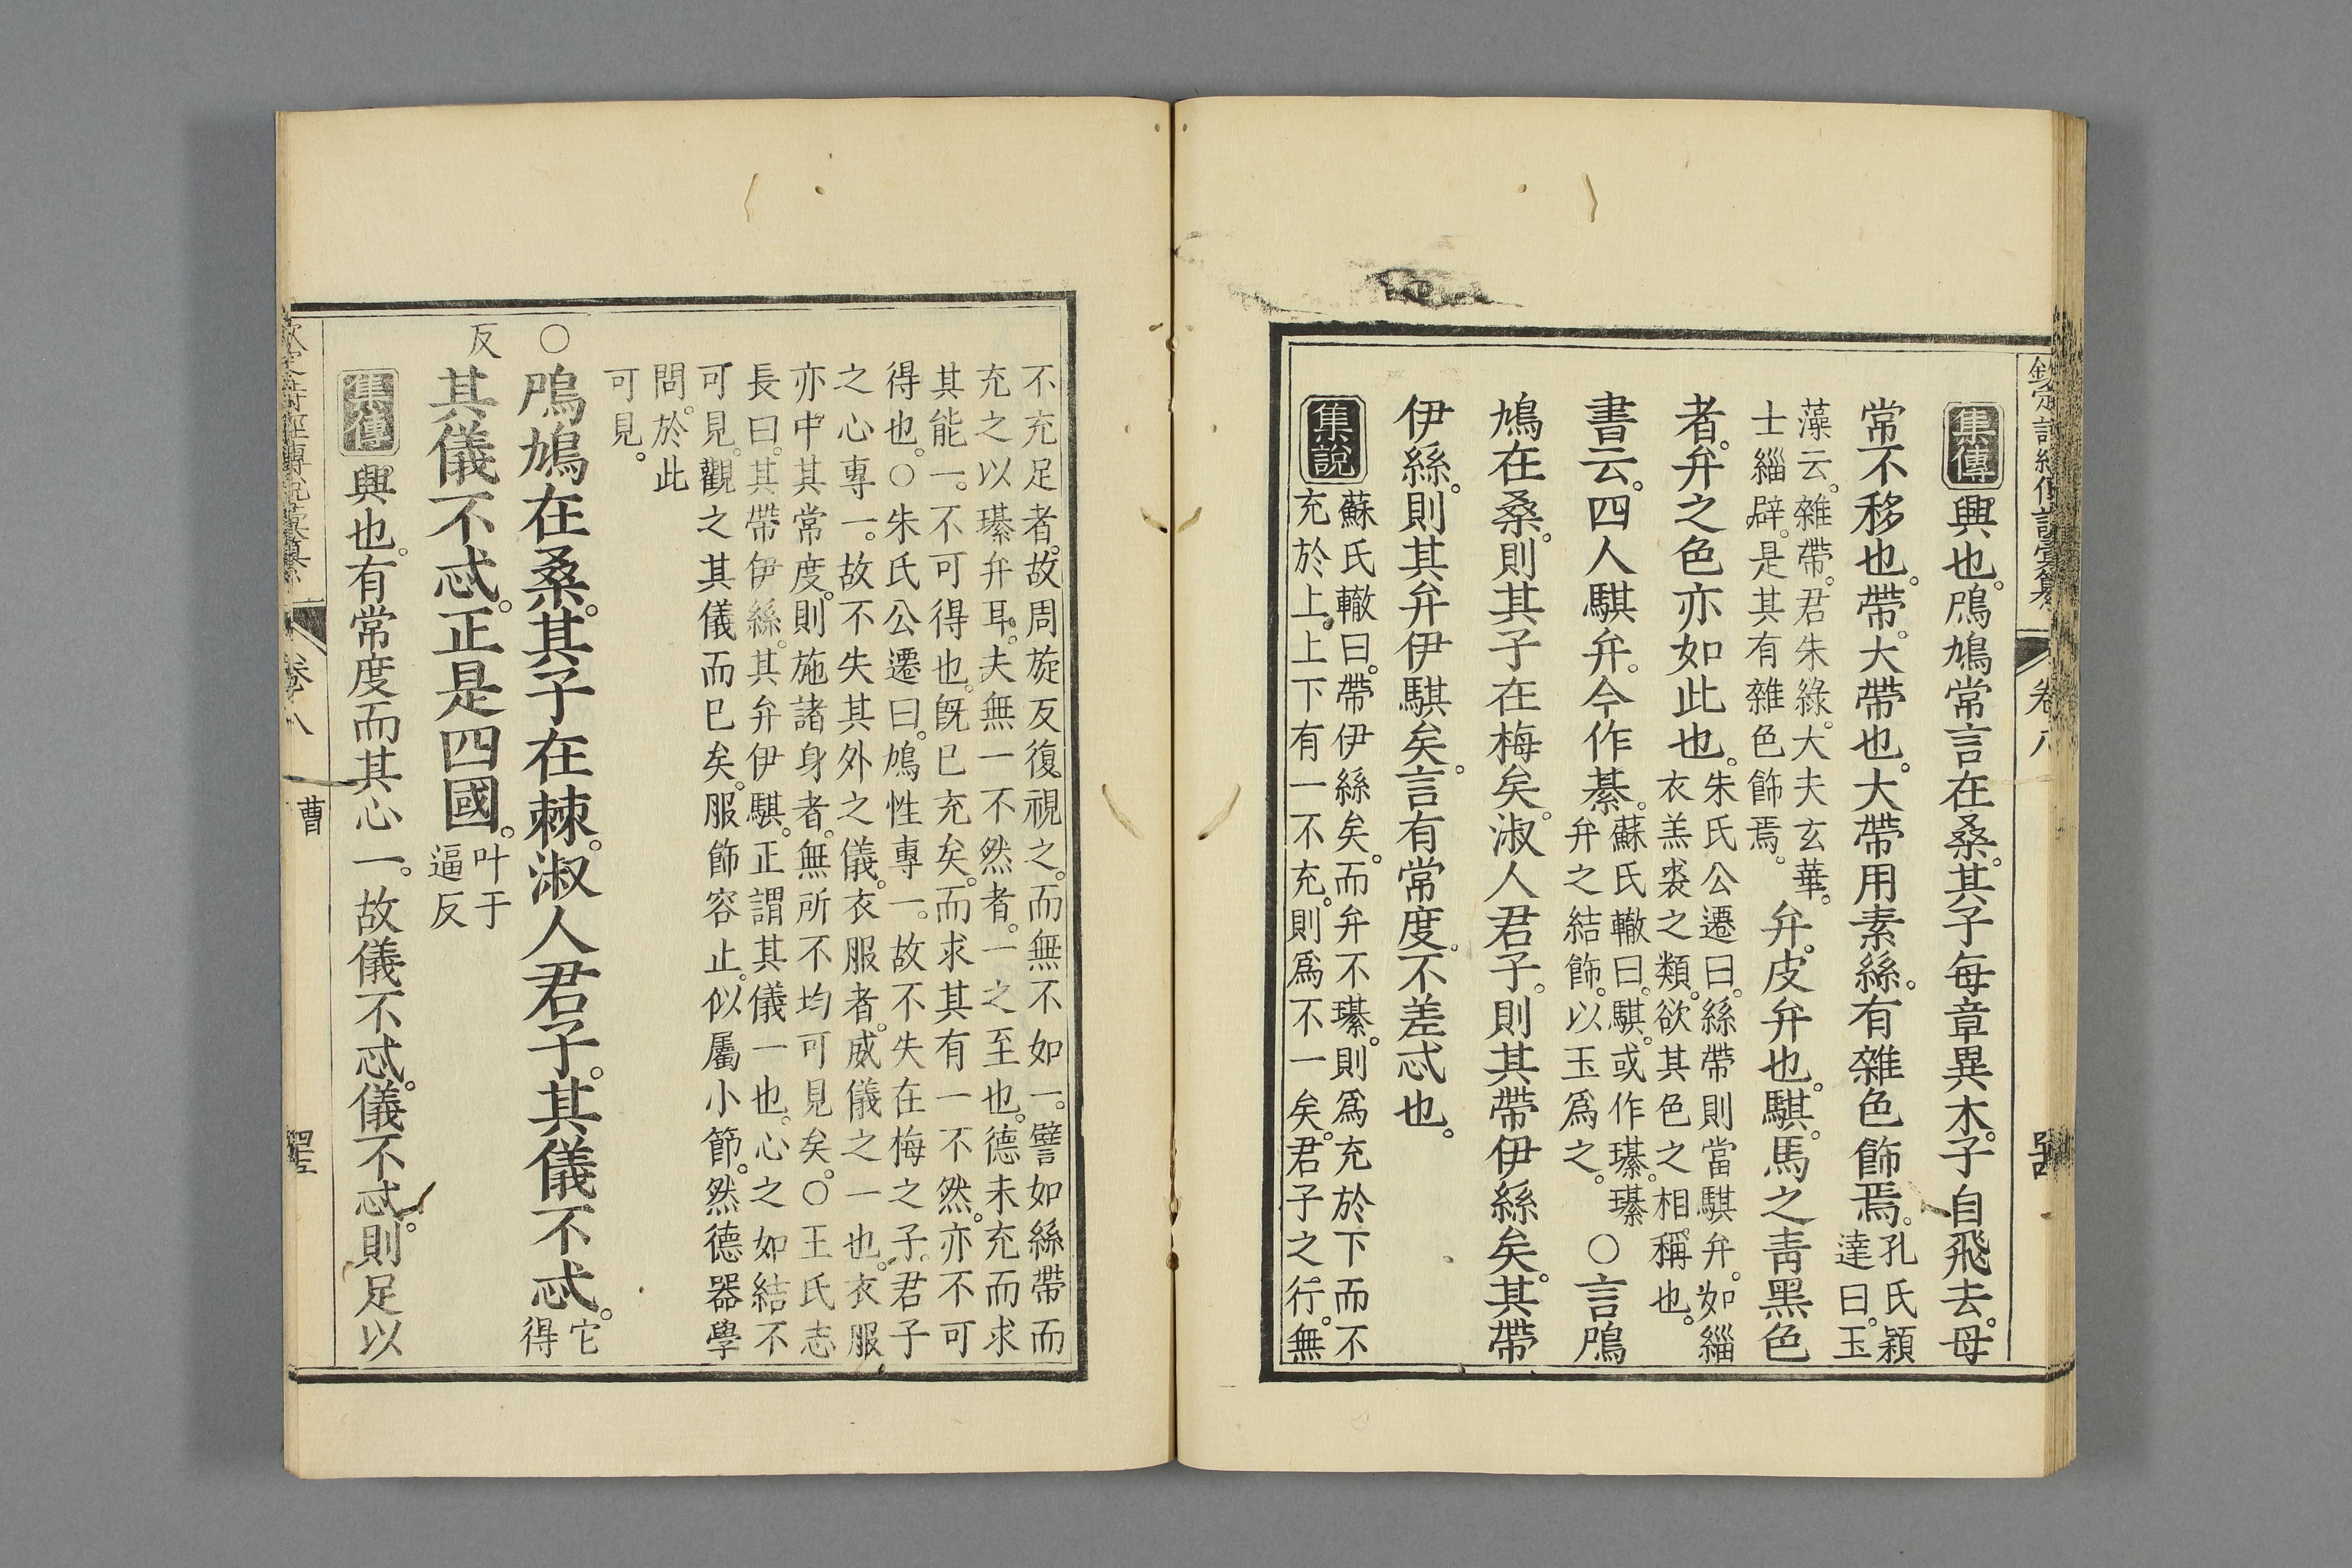 欽定詩經傳說彙纂 卷八
集傳 興也。鳲鳩常言在桑。其子每章異木。子自飛去。母
常不移也。帶。大帶也。大帶用素絲。有雜色飾焉。孔氏穎
達曰。玉
藻云。雜帶。君朱綠。大夫玄華。
士緇辟。是其有雜色飾焉。弁。皮弁也。騏。馬之青黑色
者。弁之色亦如此也。朱氏公遷曰。絲帶則當騏弁。如緇
衣羔裘之類。欲其色之相稱也。
書云。四人騏弁。今作綦。蘇氏轍曰。騏。或作璂。璂
弁之結飾。以玉爲之。○言鳲
鳩在桑。則其子在梅矣。淑人君子。則其帶伊絲矣。其帶
伊絲。則其弁伊騏矣。言有常度。不差忒也。
集說 蘇氏轍曰。帶伊絲矣。而弁不璂。則爲充於下而不
充於上。上下有一不充。則爲不一矣。君子之行。無
不充足者。故周旋反復視之。而無不如一。譬如絲帶而
充之以璂弁耳。夫無一不然者。一之至也。德未充而求
其能一。不可得也。旣已充矣。而求其有一不然。亦不可
得也。○朱氏公遷曰。鳩性專一。故不失在梅之子。君子
之心專一。故不失其外之儀。衣服者。威儀之一也。衣服
亦中其常度。則施諸身者。無所不均可見矣。○王氏志
長曰。其帶伊絲。其弁伊騏。正謂其儀一也。心之如結不
可見。觀之其儀而已矣。服飾容止。似屬小節。然德器學
問。於此
可見。
○鳲鳩在桑。其子在棘。淑人君子。其儀不忒。它
得
反 其儀不忒。正是四國。叶于
逼反
集傳 興也。有常度而其心一。故儀不忒。儀不忒。則足以
卷八 曹